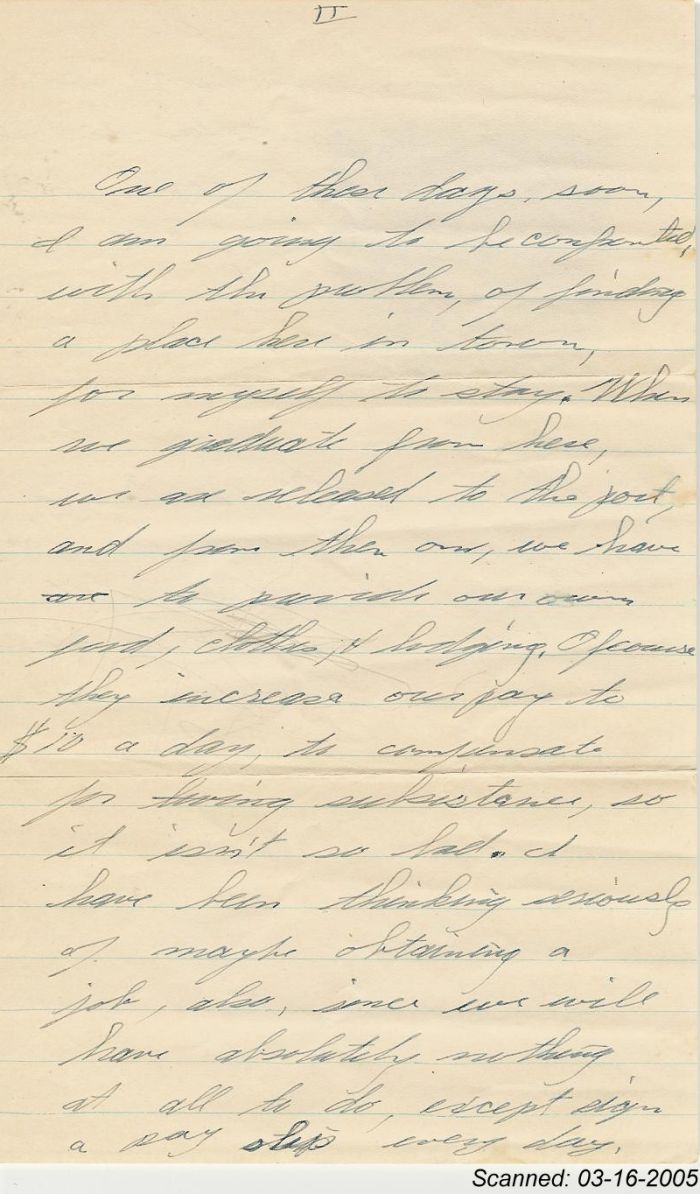 II
One of these days, soon,
I am going to be confronted,
with the problem, of finding
a place here in town,
for myself to stay. When
we graduate from here,
we are released to the port,
and from then on, we have
are to provide our own
food, clothes, & lodging. Ofcourse
they increase our pay to
$10 a day, to compensate
for living subsistance, so
it isn't so bad. I
have been thinking seriously
of maybe obtaining a
job, also, since we will
have absolutely nothing
at all to do, except sign
a pay slip every day.
Scanned: 03-16-2005